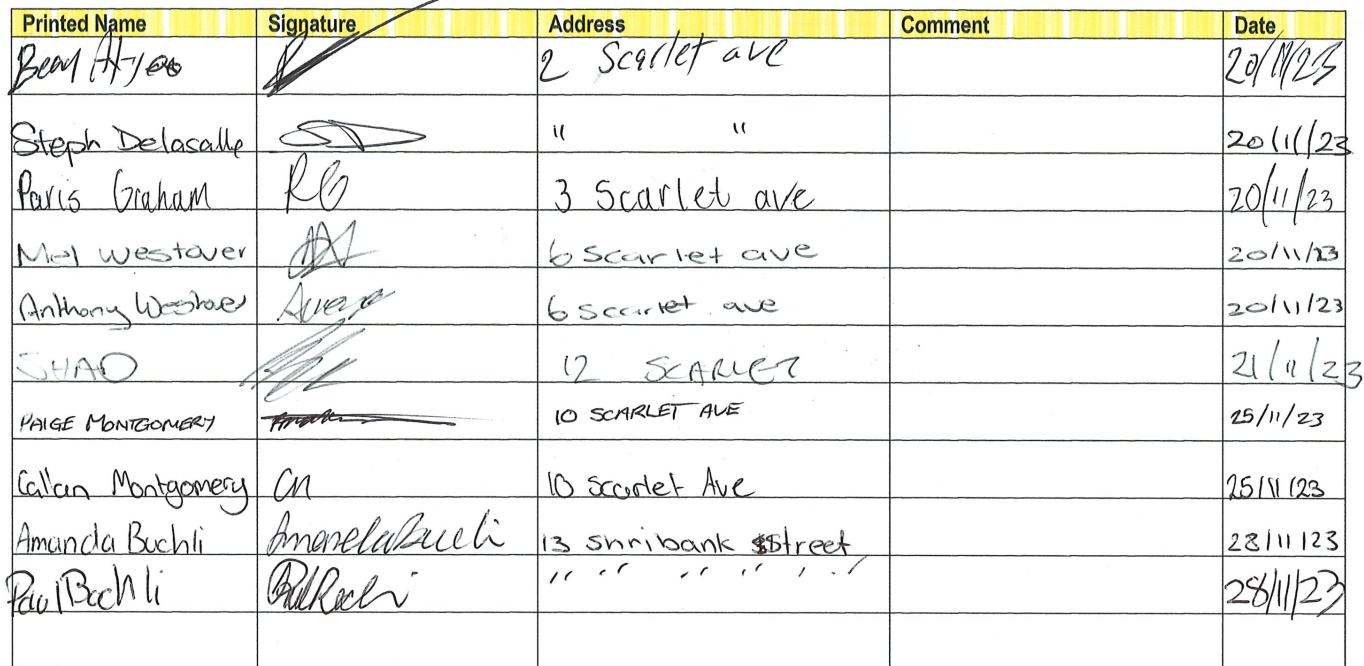 Printed Name Signature Address Comment Date
2 Scarlet ave 20/11/23
Steph Delasalle " " 20/11/23
Paris Graham RG 3 Scarlet ave 20/11/23
Mel Westover 6 Scarlet ave 20/11/23
Anthony Westover 6 Scarlet ave 20/11/23
12 SCARLET 21/11/23
PAIGE MONTGOMERY 10 SCARLET AVE 25/11/23
Callan Montgomery CM 10 Scarlet Ave 25/11/23
Amanda Buchli Amanda Buchli 13 Shribank Street 28/11/23
Paul Buchli " " " " " " 28/11/23